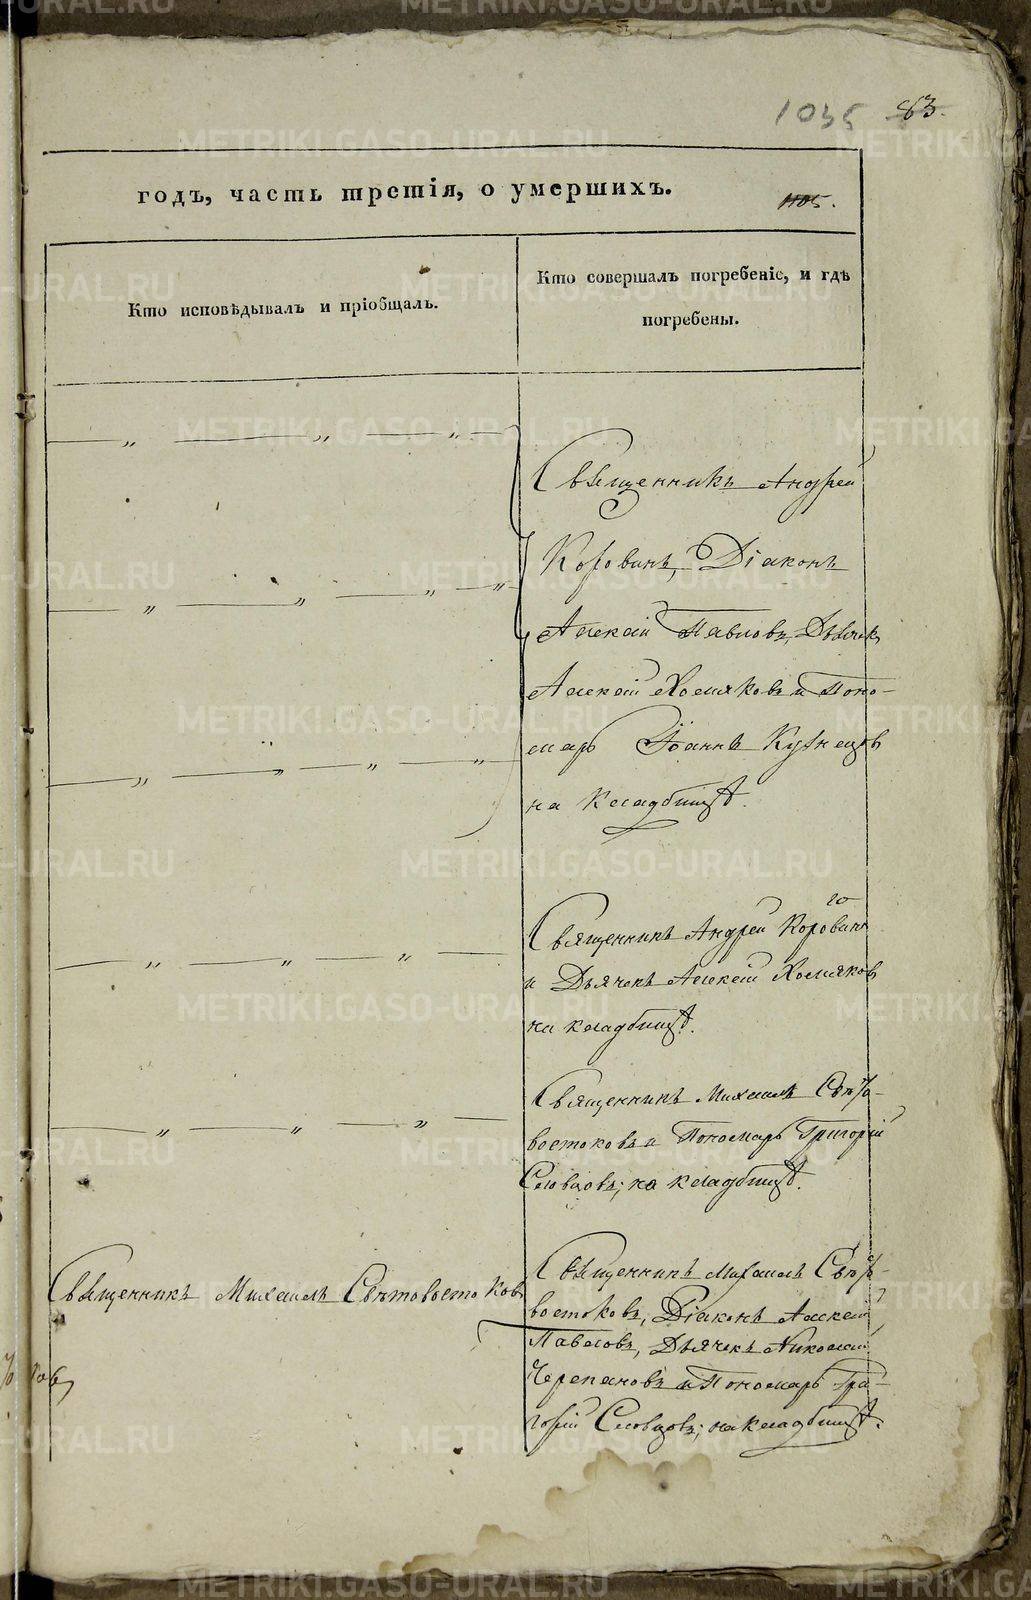 1035 83.
годъ, часть третія, о умершихъ.
1105.
Кто исповѣдывалъ и пріобщалъ.
Кто совершалъ погребеніе, и гдѣ
погребены.
Священникъ Андрей
Коровинъ, Діаконъ
Алексѣй Павловъ, Дьячек
Алексѣй Хомяковъ и Поно-
марь Іоаннъ Кузнецовъ
на кладбищѣ.
Священникъ Андрей Коровинъ
и Дьячекъ Алексѣй Хомяков
на кладбищѣ.
Священникъ Михаилъ Свѣто-
востоковъ и Пономарь Григорій
Словцовъ; на кладбищѣ.
Священникъ Михаилъ Свѣтовостоков
Священникъ Михаилъ Свѣто-
востоковъ, Діаконъ Алексѣй
Павловъ, Дьячекъ Николай
Черепановъ и Пономарь Гри-
горій Словцовъ; на кладбищѣ.
METRIKI.GASO-URAL.RU